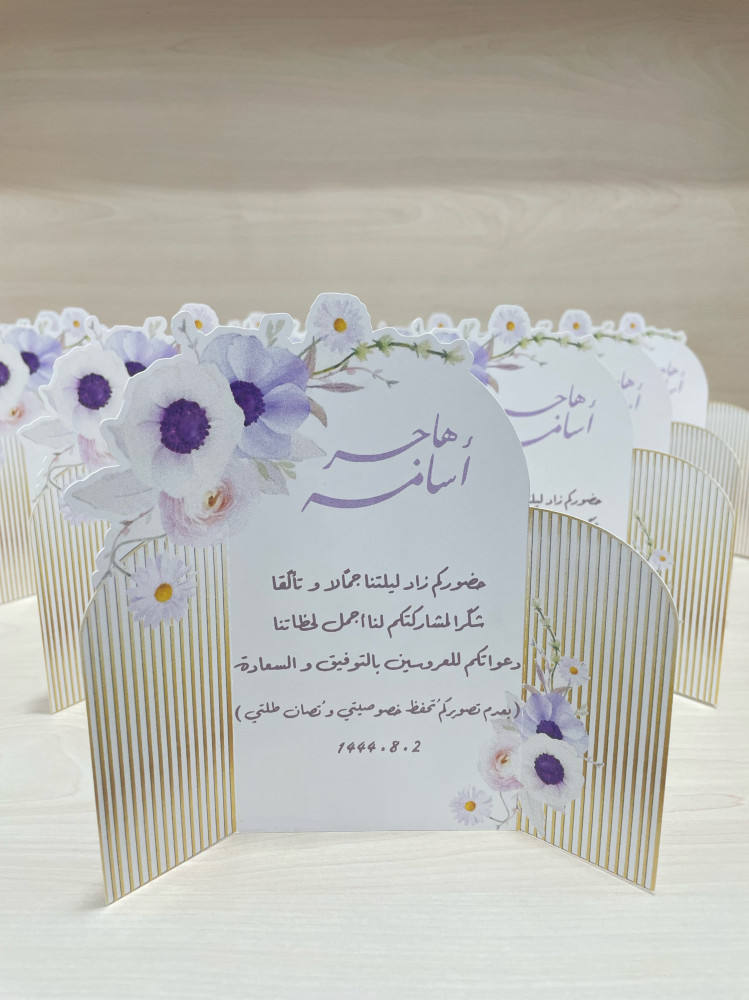 هاجر
أسامة
حضوركم زاد ليلتنا جمالا و تألقا
شكرا لمشاركتكم لنا أجمل لحظاتنا
دعواتكم للعروسين بالتوفيق و السعادة
(بعدم تصويركم تحفظ خصوصيتي و تصان طلتي)
1444.8.2
حضوركم زاد ليلتنا